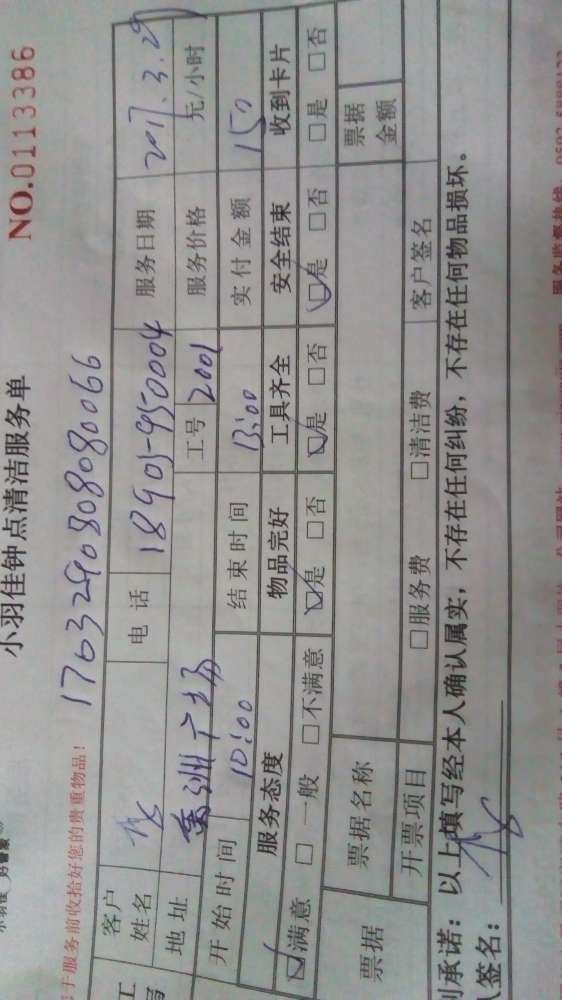 小羽佳钟点清洁服务单
NO.0113386
于服务前收拾好您的贵重物品！ 17632908080066
客户姓名 电话 18905-950004 服务日期 2017.3.29
地址 洲广场 工号 2001 服务价格 元/小时
开始时间 10:00 结束时间 13:00 实付金额 150
服务态度 物品完好 工具齐全 安全结束 收到卡片
☑满意 □一般 □不满意 ☑是 □否 ☑是 □否 ☑是 □否 □是 □否
票据 票据名称 票据金额
开票项目 □服务费 □清洁费 客户签名
承诺：以上填写经本人确认属实，不存在任何纠纷，不存在任何物品损坏。
签名：